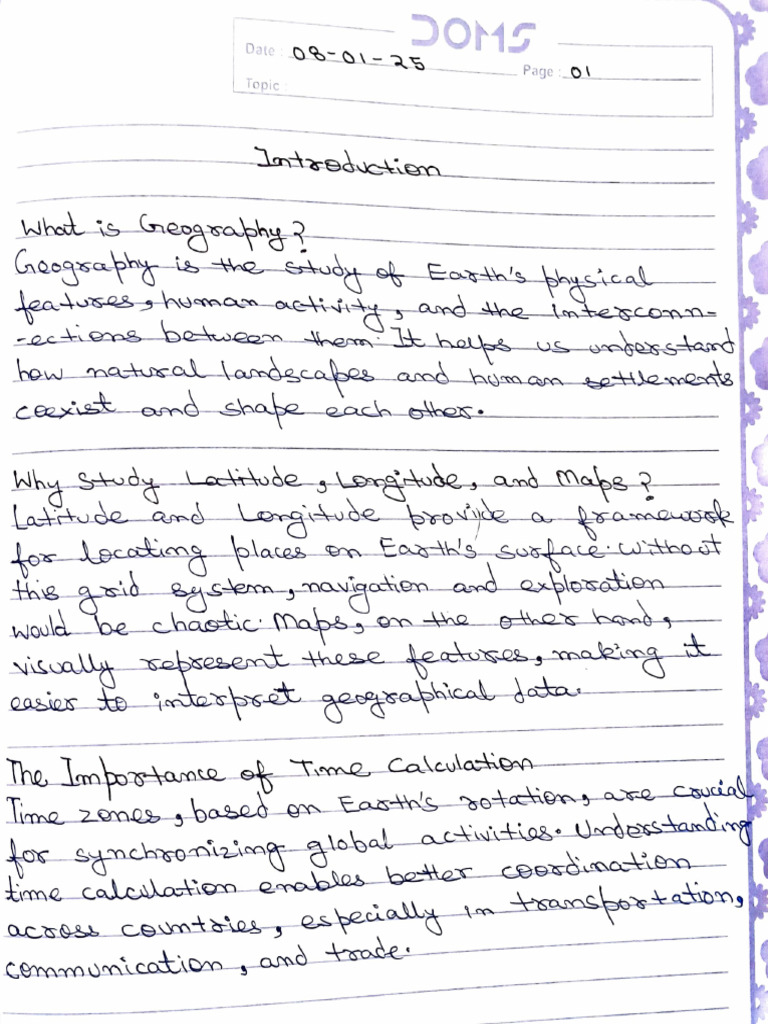 DOMS
Date: 08-01-25
Page: 01
Topic:
Introduction
What is Geography?
Geography is the study of Earth's physical
features, human activity, and the interconn-
-ections between them. It helps us understand
how natural landscapes and human settlements
coexist and shape each other.
Why study Latitude, Longitude, and Maps?
Latitude and Longitude provide a framework
for locating places on Earth's surface. Without
this grid system, navigation and exploration
would be chaotic. Maps, on the other hand,
visually represent these features, making it
easier to interpret geographical data.
The Importance of Time Calculation
Time zones, based on Earth's rotation, are crucial
for synchronizing global activities. Understanding
time calculation enables better coordination
across countries, especially in transportation,
communication, and trade.